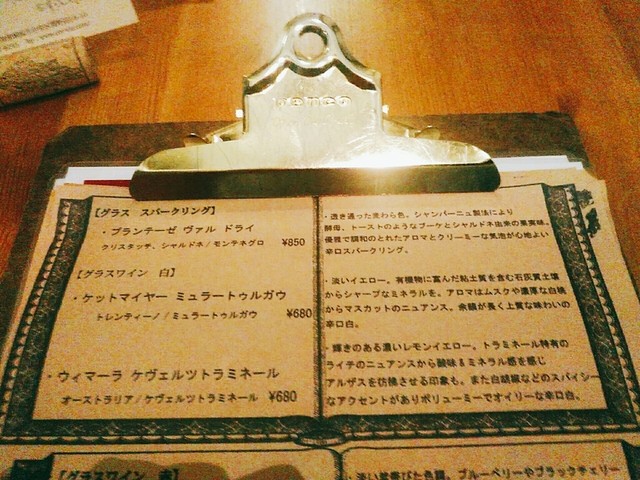 penco
【グラス スパークリング】
・プランテーゼ ヴァル ドライ
クリスタッチ、シャルドネ/モンテネグロ ¥850
【グラスワイン 白】
・ケットマイヤー ミュラートゥルガウ
トレンティーノ/ミュラートゥルガウ ¥680
・ウィマーラ ケヴェルツトラミネール
オーストラリア/ケヴェルツトラミネール ¥680
【グラスワイン 赤】
・透き通った麦わら色。シャンパーニュ製法により
酵母、トーストのようなブーケとシャルドネ由来の果実味、
優雅で調和のとれたアロマとクリーミーな気泡が心地よい
辛口スパークリング。
・淡いイエロー。有機物に富んだ粘土質を含む石灰質土壌
からシャープなミネラルを。アロマはムスクや濃厚な白桃
からマスカットのニュアンス。余韻が長く上質な味わいの
辛口白。
・輝きのある濃いレモンイエロー。トラミネール特有の
ライチのニュアンスから酸味&ミネラル感を感じ
アルザスを彷彿させる印象も。また白胡椒などのスパイシー
なアクセントがありボリューミーでオイリーな辛口白。
・淡い紫帯びた色調。ブルーベリーやブラックチェリー